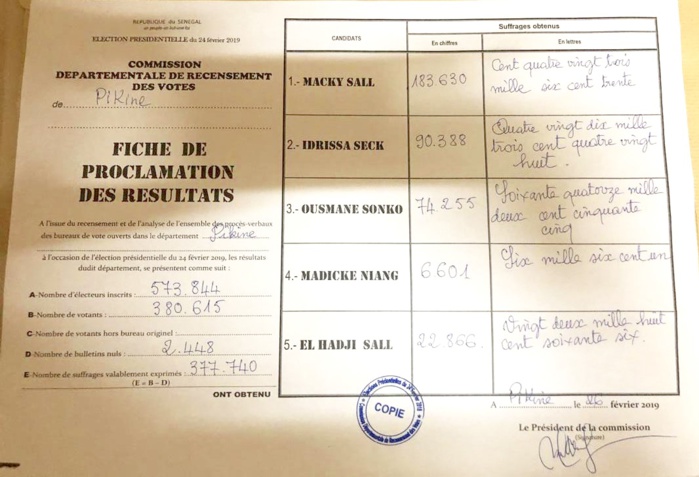 REPUBLIQUE du SENEGAL
un peuple un but une foi
ELECTION PRESIDENTIELLE du 24 février 2019
COMMISSION
DEPARTEMENTALE DE RECENSEMENT
DES VOTES
de Pikine
FICHE DE
PROCLAMATION
DES RESULTATS
A l'issue du recensement et de l'analyse de l'ensemble des procès-verbaux
des bureaux de vote ouverts dans le département Pikine
à l'occasion de l'élection présidentielle du 24 février 2019, les résultats
dudit département, se présentent comme suit :
A-Nombre d'électeurs inscrits : 573.844
B-Nombre de votants : 380.615
C-Nombre de votants hors bureau originel :
D-Nombre de bulletins nuls : 2.448
E-Nombre de suffrages valablement exprimés : 377.740
(E = B – D)
ONT OBTENU
CANDIDATS
Suffrages obtenus
En chiffres
En lettres
1.- MACKY SALL
183.630
Cent quatre vingt trois
mille six cent trente
2.- IDRISSA SECK
90.388
Quatre vingt dix mille
trois cent quatre vingt
huit.
3.- OUSMANE SONKO
74 255
Soixante quatorze mille
deux cent cinquante
cinq
4.- MADICKE NIANG
6601
Six mille six cent un
5.- EL HADJI SALL
22.866.
Vingt deux mille huit
cent soixante six.
COPIE
A Pikine le 26 février 2019
Le Président de la commission
(Signature)